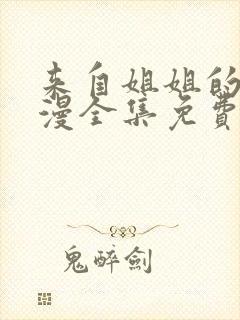 来自姐姐的
漫全集免費
鬼醉劍